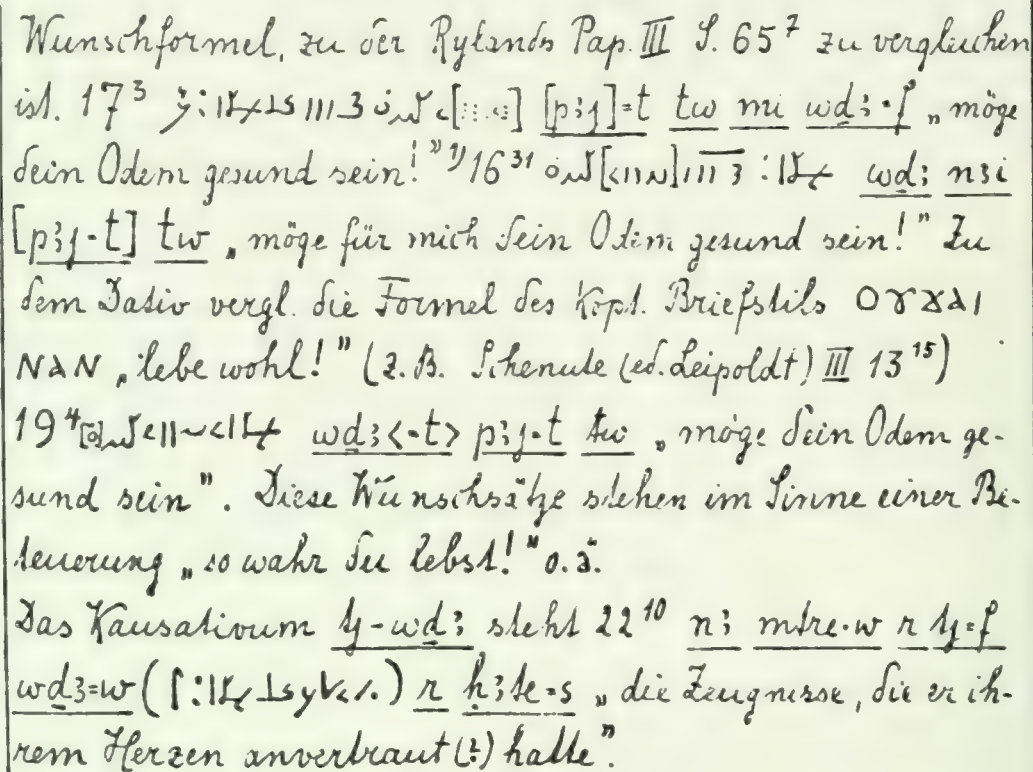 Wunschformel, zu der Rylands Pap. III S. 65⁷ zu vergleichen
ist. 17³ [pꜣj]=t tw mi wdꜣ·f „möge
dein Odem gesund sein!"¹⁾ 16³¹ wdꜣ nꜣi
[pꜣj·t] tw „möge für mich dein Odem gesund sein!" Zu
dem Dativ vergl. die Formel des Kopt. Briefstils ⲟⲩϫⲁⲓ
ⲛⲁⲛ „lebe wohl!" (z.B. Schenute (ed. Leipoldt) III 13¹⁵)
19⁴ wdꜣ<·t> pꜣj·t tw „möge dein Odem ge-
sund sein". Diese Wunschsätze stehen im Sinne einer Be-
teuerung „so wahr du lebst!" o.ä.
Das Kausativum tj-wdꜣ steht 22¹⁰ nꜣ mtre·w r tj=f
wdꜣ=w ( ) r hꜣte=s „die Zeugnisse, die er ih-
rem Herzen anvertraut (?) hatte".